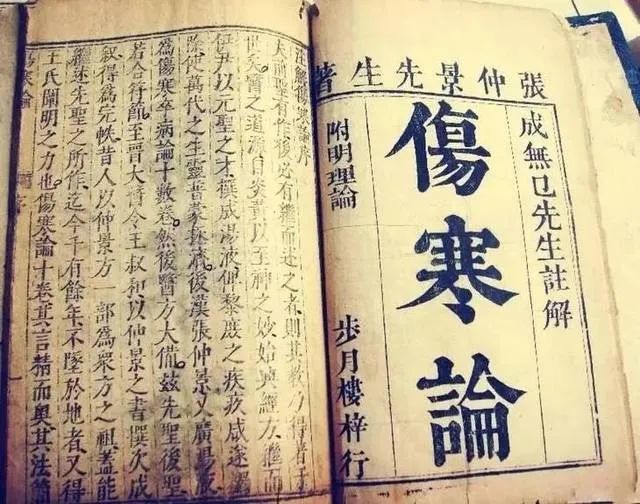 張仲景先生著
成無已先生註解
傷寒論
附明理論
步月樓梓行
註解傷寒論序
夫前聖有作後必有繼而述之者則其教乃得著于
世矣醫之道源自炎黃以至神之妙始興經方繼而
伊尹以元聖之才撰成湯液俾黎庶之疾疢咸遂蠲
除使萬代之生靈普蒙拯濟後漢張仲景又廣湯液
為傷寒卒病論十數卷然後醫方大備茲先聖後聖
若合符節至晉太醫令王叔和以仲景之書撰次成
叙得為完帙昔人以仲景方一部為眾方之祖蓋能
繼述先聖之所作迄今千有餘年不墜於地者又得
王氏闡明之力也傷寒論十卷其言精而奧其法簡
傷寒論